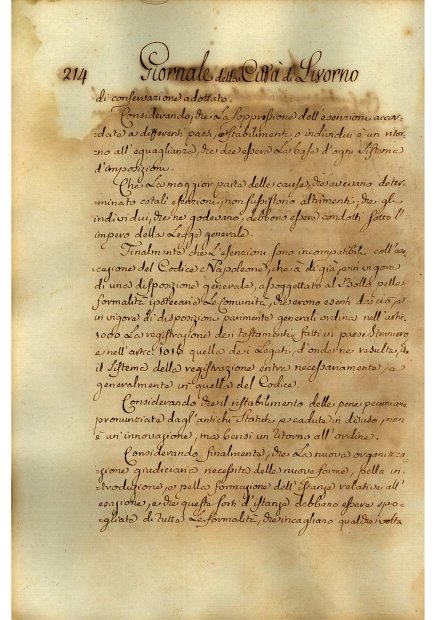 214 Giornale della Città di Livorno
di conservazione adottato.
Considerando, che La Soppressione dell'esenzioni accor-
-date a differenti paesi, estabilimenti, o individui è un ritor-
-no all'eguaglianza, che dee essere La base d'ogni Sistema
d'imposizioni.
Che La maggior parte delle cause, che avevano deter-
minato cotali esenzioni, non sussistono altrimenti, che gl'
individui, che ne godevano, debbono essere condotti sotto l'
impero della Legge generale.
Finalmente che L'esenzioni sono incompatibili coll'ese-
-cuzione del Codice Napoleone, che à di già, e in vigore
di una disposizione generale, assoggettato al Bollo pelle
formalità ipotecarie Le Comunità, che erono esenti da ciò, e
in vigore di disposizioni parimente generali ordina nell'artic.
1000 La registrazione dei testamenti fatti in paese straniero
e nell'artic. 1016 quella dei Legati, d'onde ne resulta, che
il Sistema della registrazione entra necessariamente, e
generalmente in quella del Codice.
Considerando che il ristabilimento delle pene pecuniarie
pronunziate dagl'antichi Statuti, e cadute in disuso, non
è un'innovazione, ma bensì un ritorno all'ordine.
Considerando finalmente, che La nuova organizza-
-zione giudiciaria necessita delle nuove forme, pella in-
-troduzione, e pella formazione dell'istanze relative all'
esazione, e che queste sorti d'istanze debbano essere spo-
-gliate di tutte Le formalità, che incagliano qualche volta